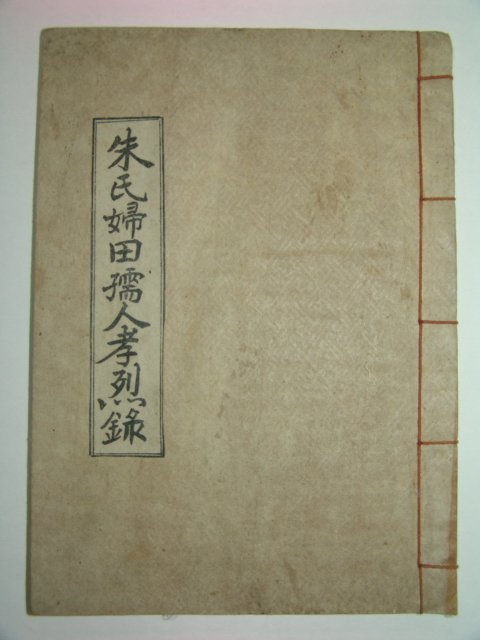 朱氏婦田孺人孝烈錄